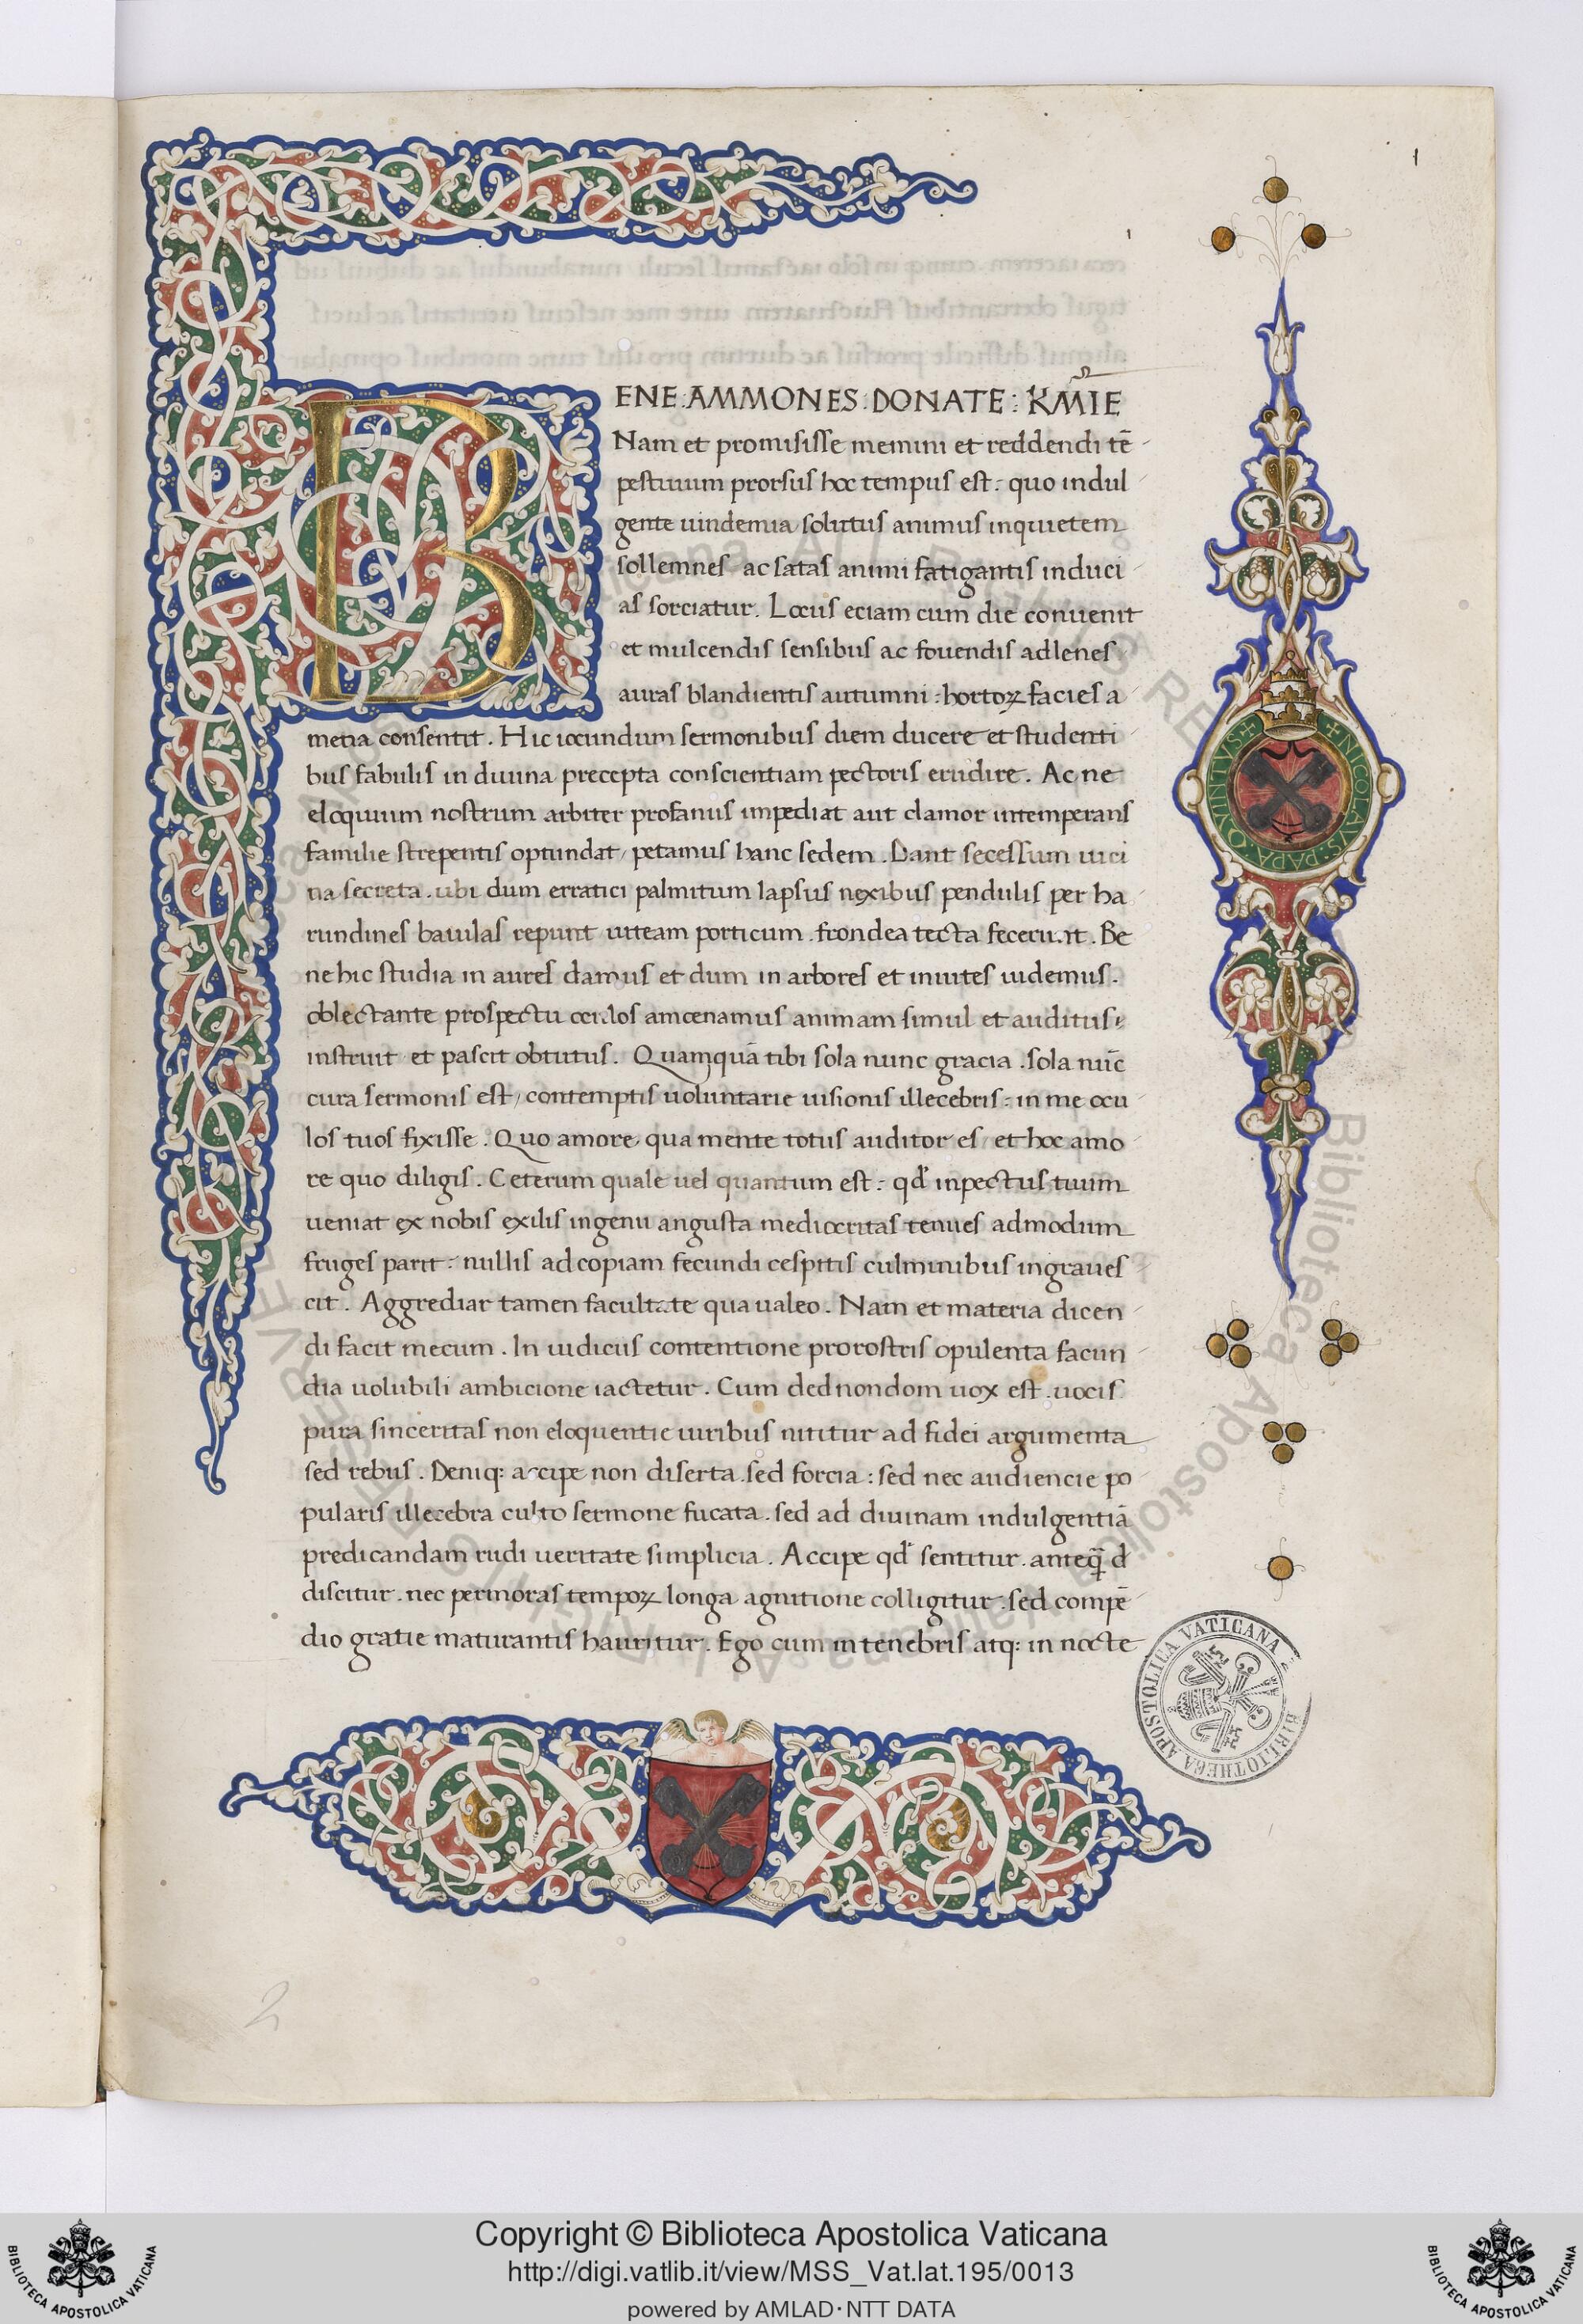 1
1
BENE : AMMONES : DONATE : KMIE
Nam et promisisse memini et reddendi tē
pestiuum prorsus hoc tempus est : quo indul
gente uindemia solutus animus inquietem
sollemnes ac satas animi fatigantis induci
as sorciatur . Locus eciam cum die conuenit
et mulcendis sensibus ac fouendis adlenes
auras blandientis autumni : hortoꝝ facies a
mena consentit . Hic iocundum sermonibus diem ducere et studenti
bus fabulis in diuina precepta conscientiam pectoris erudire . Ac ne
eloquium nostrum arbiter profanus impediat aut clamor intemperans
familie strepentis optundat / petamus hanc sedem . Dant secessum uici
na secreta . ubi dum erratici palmitum lapsus nexibus pendulis per ha
rundines baiulas repunt uiteam porticum . frondea tecta fecerunt . Be
ne hic studia in aures damus et dum in arbores et inuites uidemus .
oblectante prospectu oculos amoenamus animam simul et auditus :
instruit et pascit obtutus . Quamquā tibi sola nunc gracia . sola nūc
cura sermonis est / contemptis uoluntarie uisionis illecebris : in me ocu
los tuos fixisse . Quo amore qua mente totus auditor es / et hoc amo
re quo diligis . Ceterum quale uel quantum est : qd' inpectus tuum
ueniat ex nobis exilis ingenii angusta mediocritas tenues admodum
fruges parit : nullis ad copiam fecundi cespitis culminibus ingraues
cit . Aggrediar tamen facultate qua ualeo . Nam et materia dicen
di facit mecum . In iudiciis contentione prorostris opulenta facun
dia uolubili ambicione iactetur . Cum ded nondom uox est . uocis
pura sinceritas non eloquentie uiribus nititur ad fidei argumenta
sed rebus . Deniq: accipe non diserta . sed forcia : sed nec audiencie po
pularis illecebra culto sermone fucata . sed ad diuinam indulgentiā
predicandam rudi ueritate simplicia . Accipe qd' sentitur . anteq̄ d
discitur . nec permoras tempoꝝ longa agnitione colligitur . sed compē
dio gratie maturantis hauritur . Ego cum in tenebris atq: in nocte
+ NICOLAVS : PAPA . QVINTVS +
BIBLIOTHECA APOSTOLICA VATICANA
2
Biblioteca Apostolica Vaticana ALL RIGHTS RESERVED
Copyright © Biblioteca Apostolica Vaticana
http://digi.vatlib.it/view/MSS_Vat.lat.195/0013
powered by AMLAD·NTT DATA
BIBLIOTECA APOSTOLICA VATICANA
BIBLIOTECA APOSTOLICA VATICANA